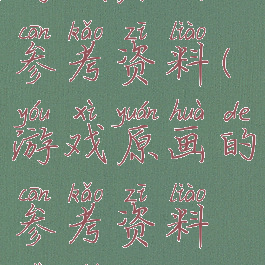 cān kǎo zī liào
参考资料(
yóu xì yuán huà de
游戏原画的
cān kǎo zī liào
参考资料